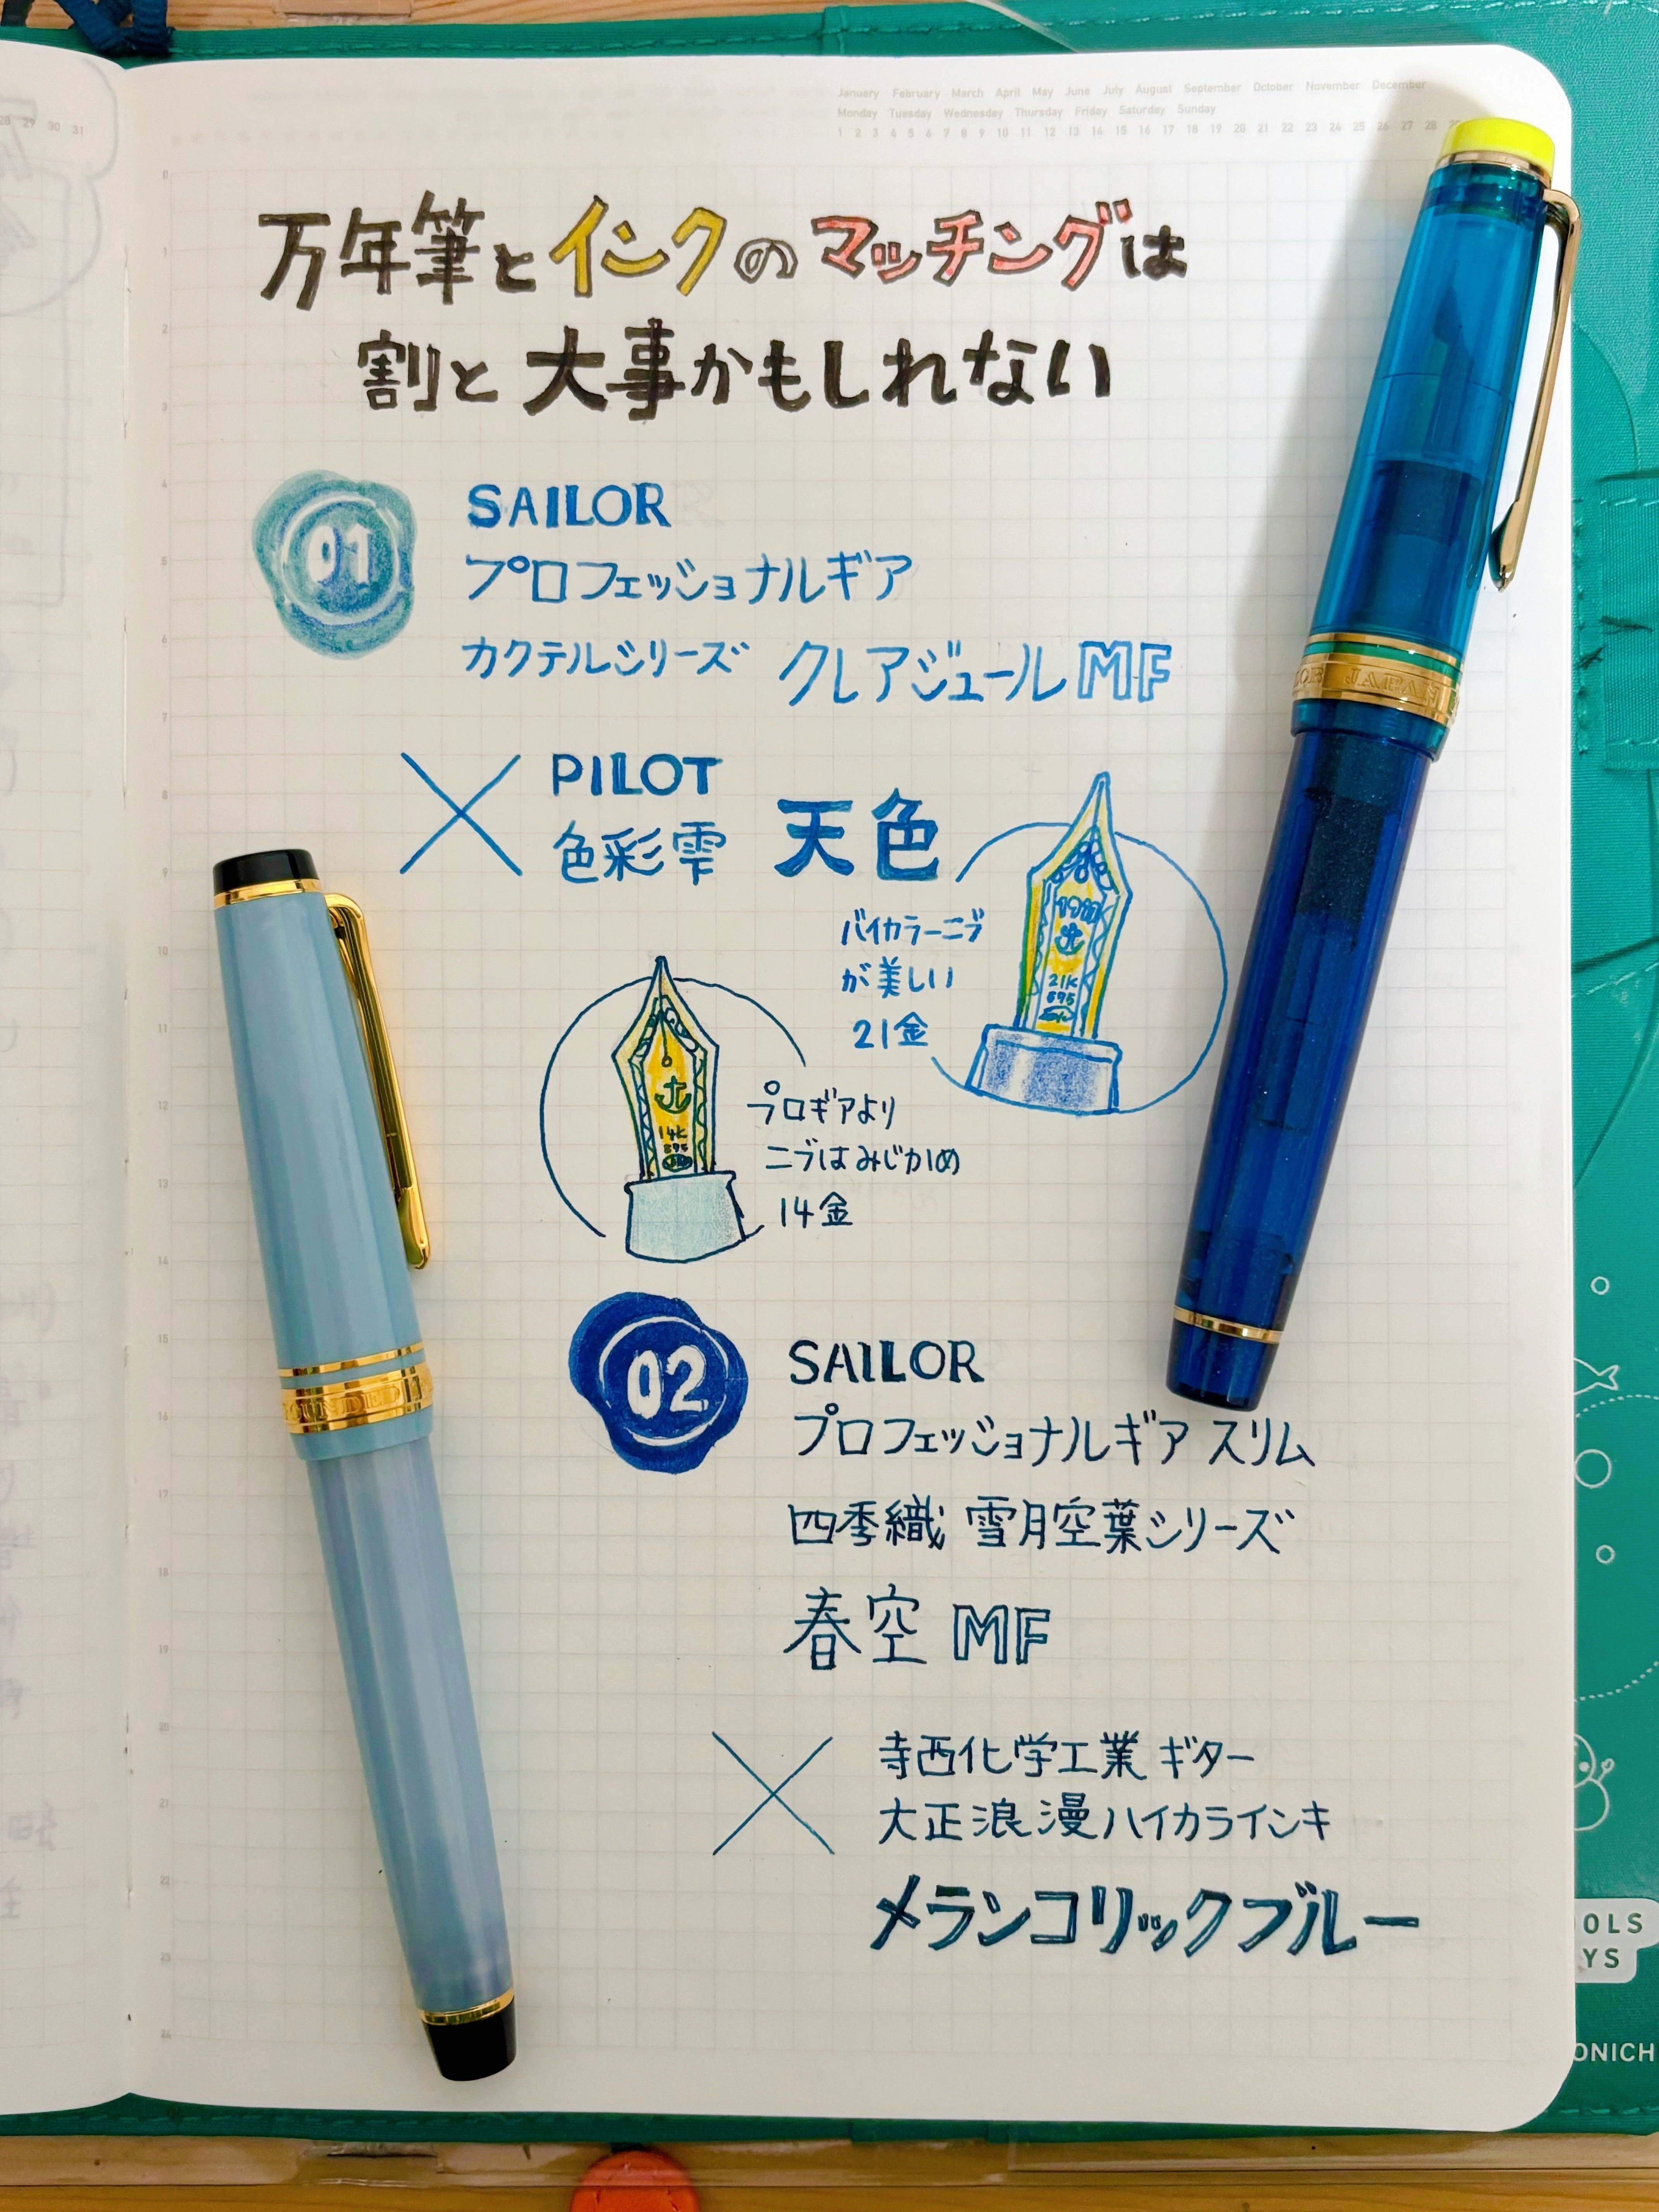 January February March April May June July August September October November December
Monday Tuesday Wednesday Thursday Friday Saturday Sunday
1 2 3 4 5 6 7 8 9 10 11 12 13 14 15 16 17 18 19 20 21 22 23 24 25 26 27 28
28 29 30 31
万年筆とインクのマッチングは
割と大事かもしれない
01
SAILOR
プロフェッショナルギア
カクテルシリーズ クレアジュール MF
PILOT
色彩雫 天色
バイカラーニブ
が美しい
21金
21K
875
プロギアより
ニブはみじかめ
14金
14K
02
SAILOR
プロフェッショナルギア スリム
四季織 雪月空葉シリーズ
春空 MF
寺西化学工業 ギター
大正浪漫ハイカラインキ
メランコリックブルー
JAPAN
OUNDED
OLS
YS
ONICH